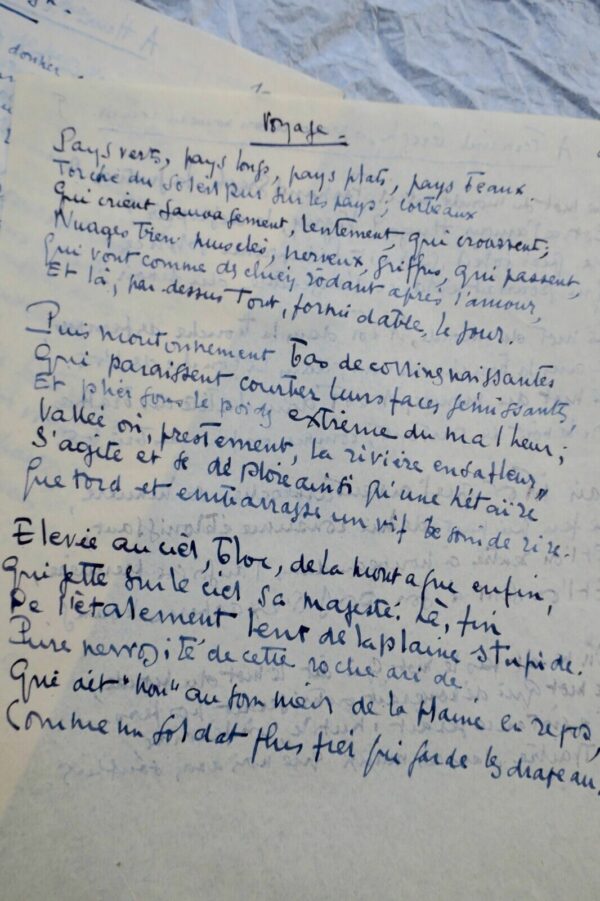 1-
Voyage.
Pays verts, pays longs, pays plats, pays beaux
Torche du soleil pur sur les pays ; corbeaux
Qui crient sauvagement, lentement, qui croassent ;
Nuages très musclés, nerveux, griffus, qui passent,
Qui vont comme des chiens rôdant après l'amour,
Et là, par dessus tout, formidable, le jour.
Puis moutonnement bas de collines naissantes
Qui paraissent courber leurs faces gémissantes,
Et plier sous le poids extrême du malheur ;
Vallée où, prestement, la rivière en
S'agite et se déploie ainsi qu'une hétaïre
Que tord et embarrasse un vif besoin de rire.
Elevée au ciel, bloc, de la montagne enfin,
Qui jette sur le ciel sa majesté. Là, fin
De l'étalement lent de la plaine stupide.
Pure nervosité de cette roche aride
Qui dit "non" au sommeil de la plaine en repos,
Comme un soldat plus fier qui garde les drapeaux.
donner